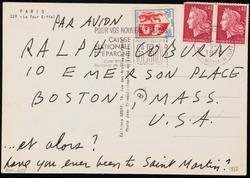 PARIS
229 - La Tour Eiffel
PAR AVION
POUR VOS
CAISSE
NATIONALE
D'EPARGNE
RALPH COBURN
10 EMERSON PLACE
BOSTON, MASS.
U.S.A.
...et alors?
have you ever been to Saint Martin?